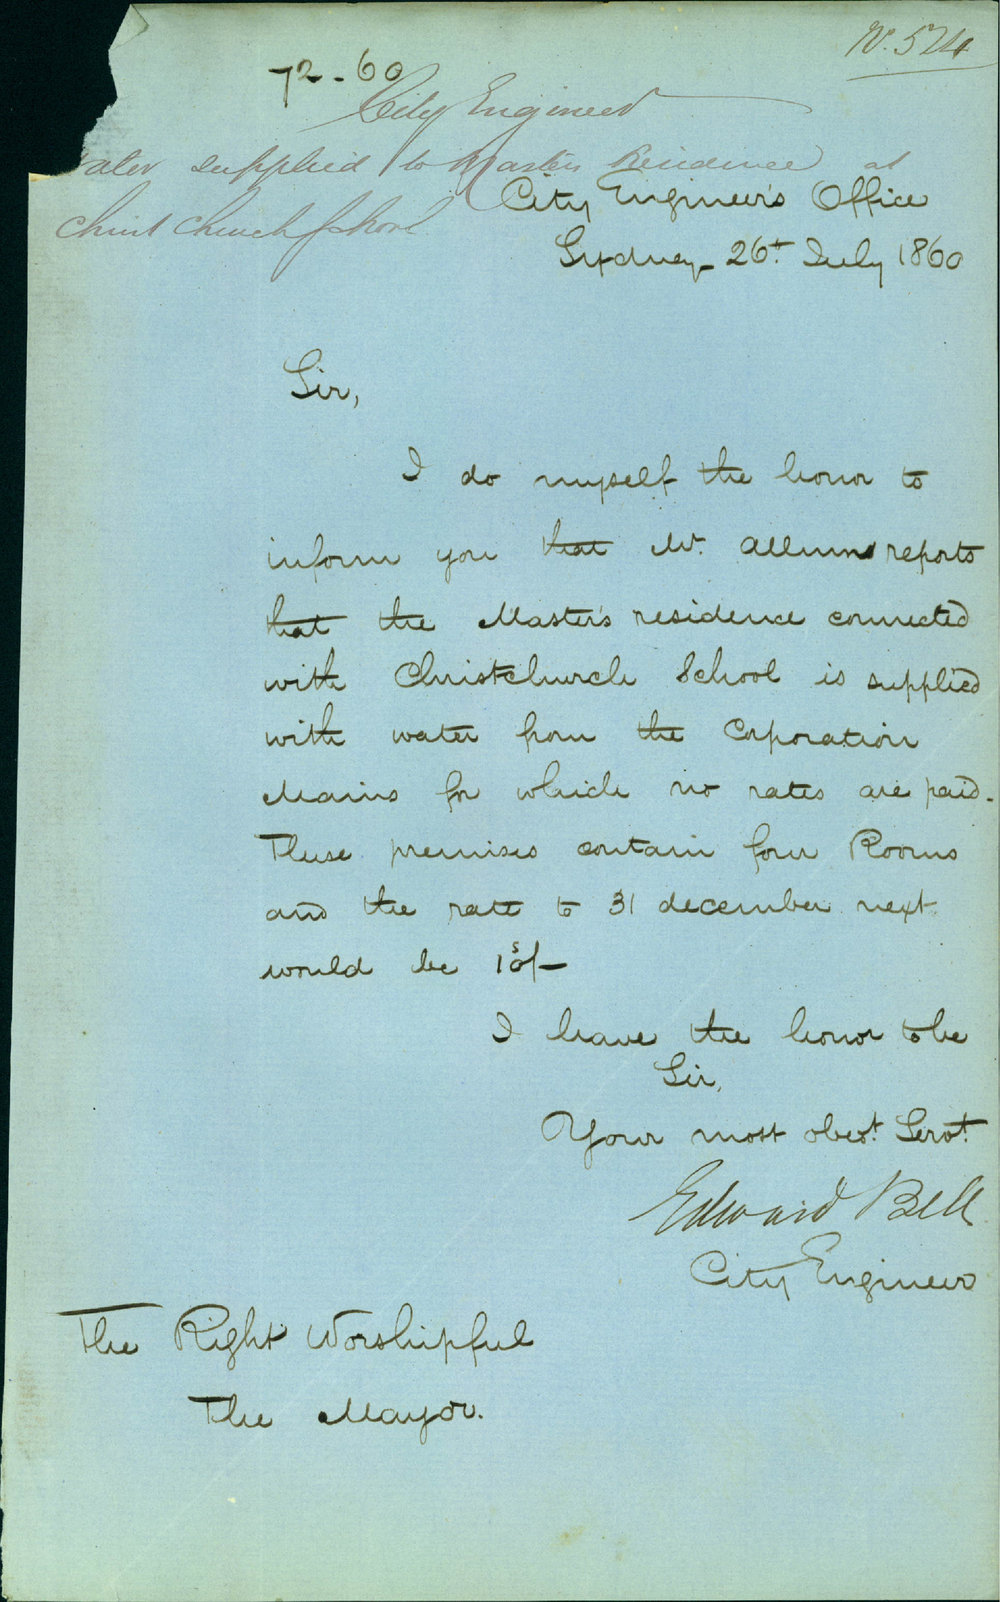 No. 574
72-60
City Engineer
ater supplied to Masters Residence at
Christ Church School
City Engineer's Office
Sydney 26t July 1860
Sir,
I do myself the honor to
inform you that Mr. Allum reports
that the Master's residence connected
with Christchurch School is supplied
with water from the Corporation
Mains for which no rates are paid.
These premises contain four Rooms
and the rate to 31 december next
would be 10s/-
I have the honor to be
Sir,
Your most obedt. Servt.
Edward Bell
City Engineer
The Right Worshipful
The Mayor.